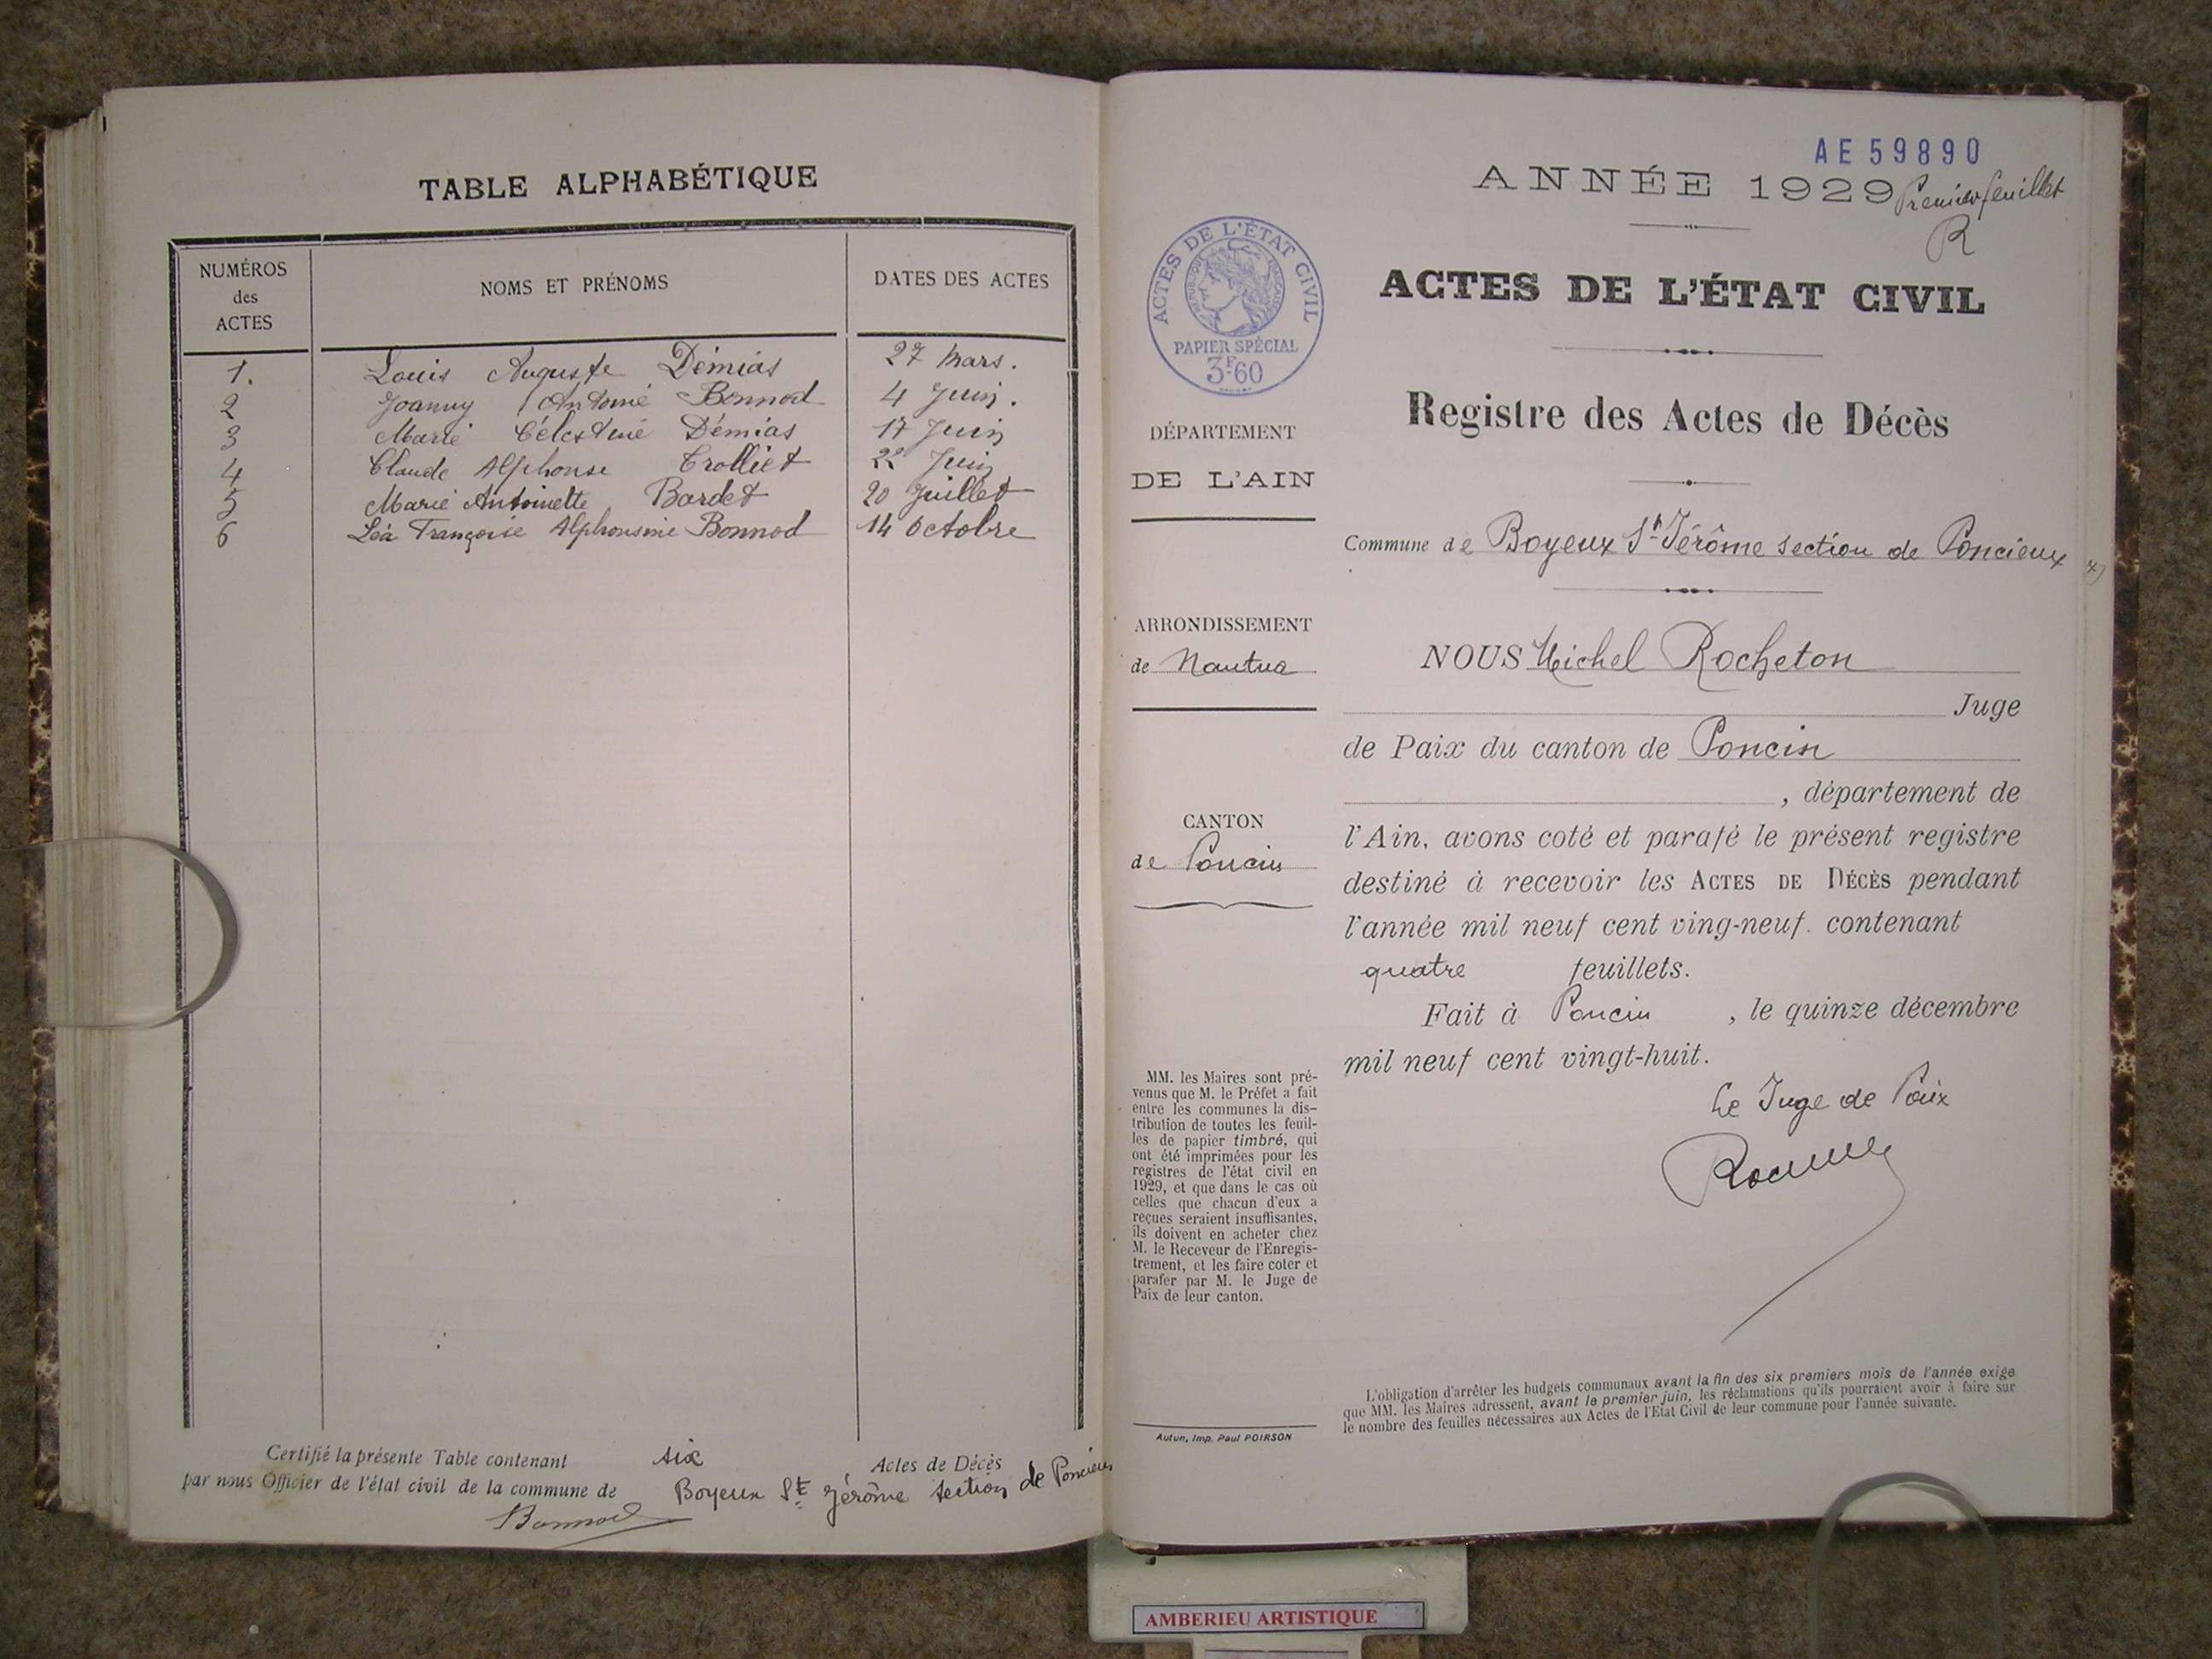 TABLE ALPHABÉTIQUE
NUMÉROS
des
ACTES
NOMS ET PRÉNOMS
DATES DES ACTES
1. Louis Auguste Démias 27 Mars.
2 Joanny Antoine Bonnod 4 Juin.
3 Marie Célestine Démias 17 Juin
4 Claude Alphonse Trolliet 22 Juin
5 Marie Antoinette Bardet 20 Juillet
6 Léa Françoise Alphonsine Bonnod 14 Octobre
Certifié la présente Table contenant six Actes de Décès
par nous Officier de l'état civil de la commune de Boyeux St Jérôme section de Poncieux
Bonnod
AE 59890
ANNÉE 1929 Premier feuillet
R
ACTES DE L'ÉTAT CIVIL
RÉPUBLIQUE FRANÇAISE
PAPIER SPÉCIAL
3F60
ACTES DE L'ÉTAT CIVIL
Registre des Actes de Décès
DÉPARTEMENT
DE L'AIN
Commune de Boyeux St Jérôme section de Poncieux
ARRONDISSEMENT
de Nantua
NOUS Michel Rocheton
Juge
de Paix du canton de Poncin
, département de
CANTON
de Poncin
l'Ain, avons coté et parafé le présent registre
destiné à recevoir les ACTES DE DÉCÈS pendant
l'année mil neuf cent ving-neuf. contenant
quatre feuillets.
Fait à Poncin , le quinze décembre
mil neuf cent vingt-huit.
Le Juge de Paix
MM. les Maires sont pré-
venus que M. le Préfet a fait
entre les communes la dis-
tribution de toutes les feuil-
les de papier timbré, qui
ont été imprimées pour les
registres de l'état civil en
1929, et que dans le cas où
celles que chacun d'eux a
reçues seraient insuffisantes,
ils doivent en acheter chez
M. le Receveur de l'Enregis-
trement, et les faire coter et
parafer par M. le Juge de
Paix de leur canton.
L'obligation d'arrêter les budgets communaux avant la fin des six premiers mois de l'année exige
que MM. les Maires adressent, avant le premier juin, les réclamations qu'ils pourraient avoir à faire sur
le nombre des feuilles nécessaires aux Actes de l'Etat Civil de leur commune pour l'année suivante.
Autun, Imp. Paul POIRSON
AMBERIEU ARTISTIQUE